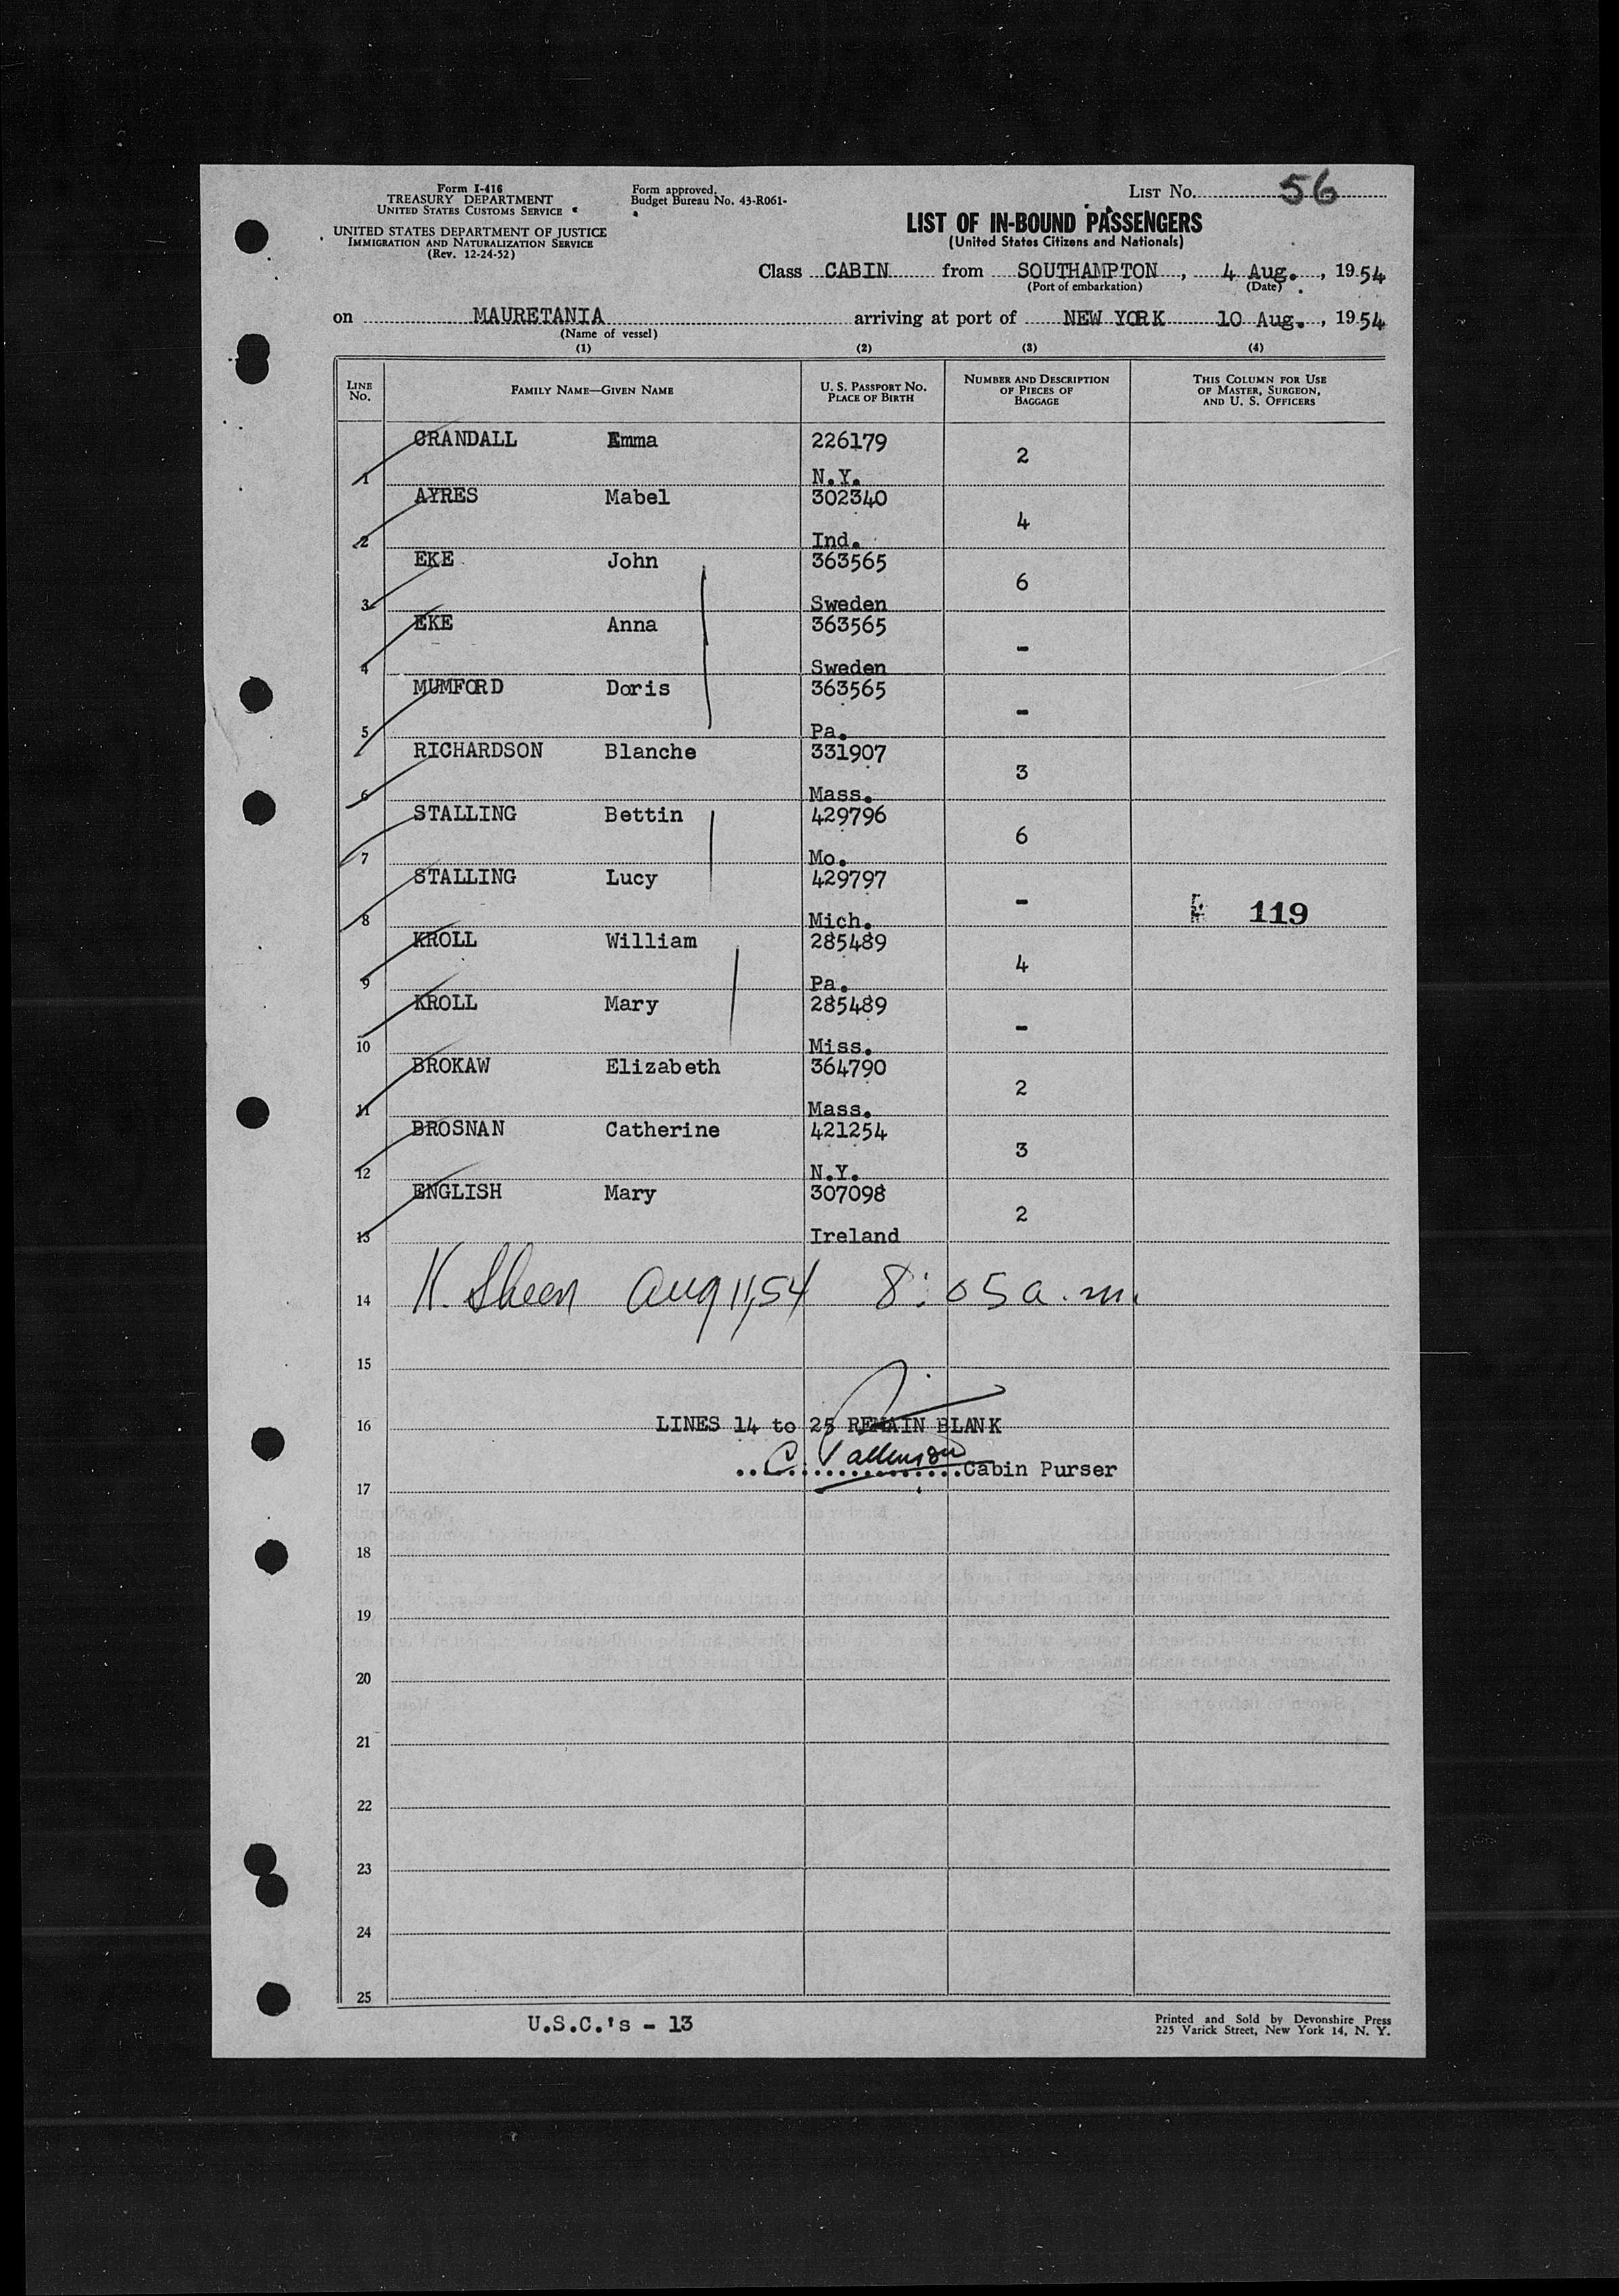 Form I-416
TREASURY DEPARTMENT
UNITED STATES CUSTOMS SERVICE
UNITED STATES DEPARTMENT OF JUSTICE
IMMIGRATION AND NATURALIZATION SERVICE
(Rev. 12-24-52)
Form approved.
Budget Bureau No. 43-R061-
LIST NO. 56
LIST OF IN-BOUND PASSENGERS
(United States Citizens and Nationals)
Class CABIN from SOUTHAMPTON, 4 Aug., 1954
(Port of embarkation) (Date)
on MAURETANIA arriving at port of NEW YORK 10 Aug., 1954
(Name of vessel)
(1) (2) (3) (4)
LINE NO. FAMILY NAME—GIVEN NAME U. S. PASSPORT NO. PLACE OF BIRTH NUMBER AND DESCRIPTION OF PIECES OF BAGGAGE THIS COLUMN FOR USE OF MASTER, SURGEON, AND U. S. OFFICERS
CRANDALL Emma 226179
2
1 N.Y.
AYRES Mabel 302340
4
2 Ind.
EKE John 363565
6
3 Sweden
EKE Anna 363565
-
4 Sweden
MUMFORD Doris 363565
-
5 Pa.
RICHARDSON Blanche 331907
3
6 Mass.
STALLING Bettin 429796
6
7 Mo.
STALLING Lucy 429797
-
8 Mich. 119
KROLL William 285489
4
9 Pa.
KROLL Mary 285489
-
10 Miss.
BROKAW Elizabeth 364790
2
11 Mass.
BROSNAN Catherine 421254
3
12 N.Y.
ENGLISH Mary 307098
2
13 Ireland
14 K. Sheen Aug 11, 54 8:05 a.m.
15
16 LINES 14 to 25 REMAIN BLANK
Cabin Purser
17
18
19
20
21
22
23
24
25
U.S.C.'s - 13
Printed and Sold by Devonshire Press
225 Varick Street, New York 14, N. Y.